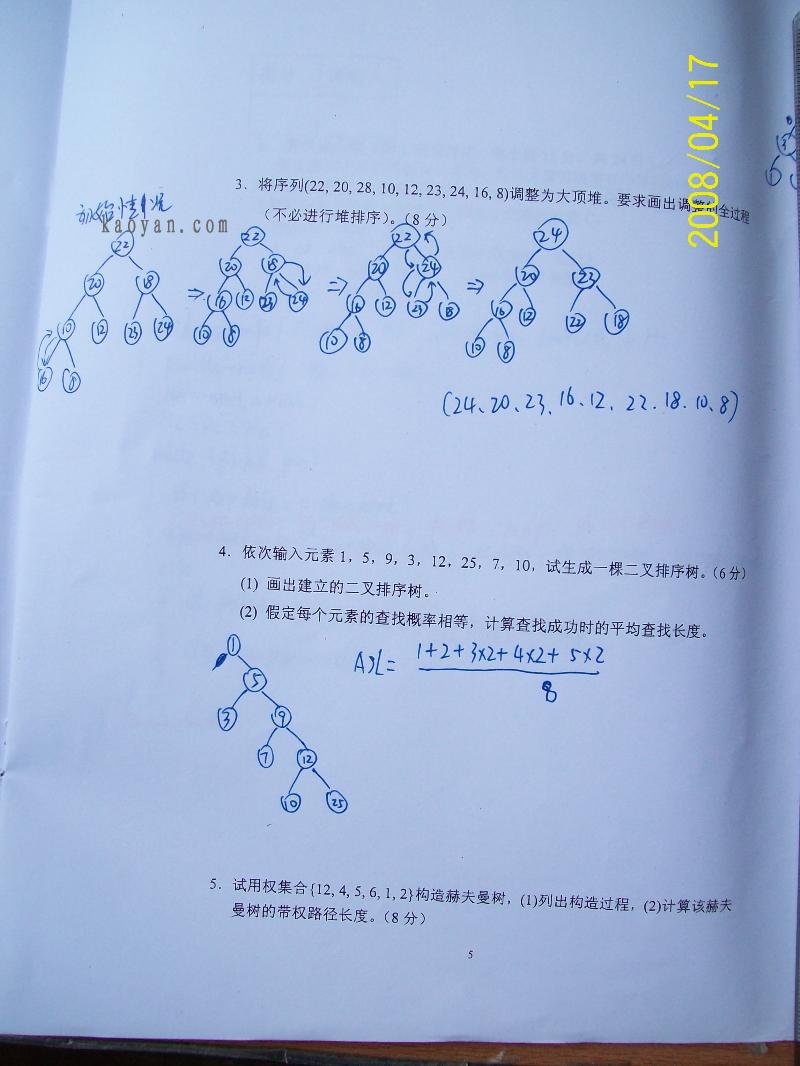 2008/04/17
3. 将序列(22, 20, 28, 10, 12, 23, 24, 16, 8)调整为大顶堆。要求画出调整的全过程
(不必进行堆排序)。(8 分)
kaoyan.com
22 20 18 10 12 23 24 16 8
⇒ 22 20 18 16 12 23 24 10 8
⇒ 22 20 24 16 12 23 18 10 8
⇒ 24 20 23 16 12 22 18 10 8
(24、20、23、16、12、22、18、10、8)
4. 依次输入元素 1，5，9，3，12，25，7，10，试生成一棵二叉排序树。(6 分)
(1) 画出建立的二叉排序树。
(2) 假定每个元素的查找概率相等，计算查找成功时的平均查找长度。
ASL= 1+2+3×2+4×2+5×2
8
1
5
3 9
7 12
10 25
5. 试用权集合{12, 4, 5, 6, 1, 2}构造赫夫曼树，(1)列出构造过程，(2)计算该赫夫
曼树的带权路径长度。(8 分)
5